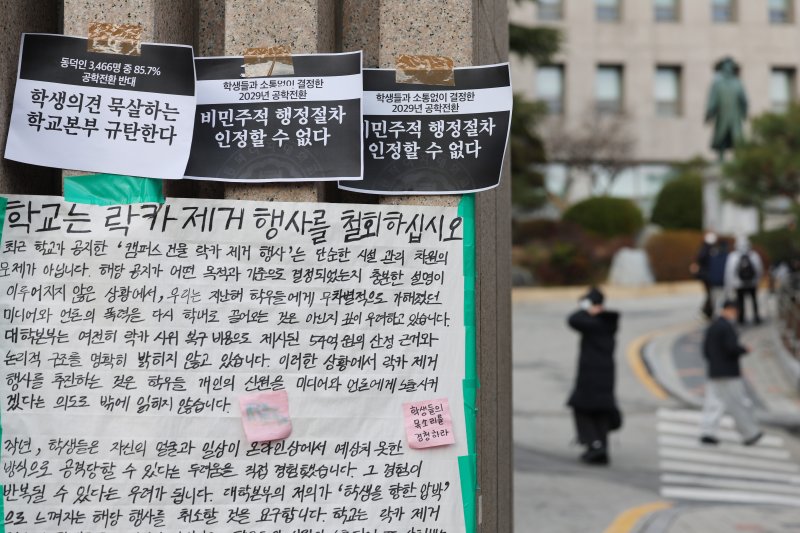 동덕인 3,466명 중 85.7%
공학전환 반대
학생의견 묵살하는
학교본부 규탄한다
학생들과 소통없이 결정한
2029년 공학전환
비민주적 행정절차
인정할 수 없다
학생들과 소통없이 결정한
2029년 공학전환
비민주적 행정절차
인정할 수 없다
학교는 락카 제거 행사를 철회하십시오
최근 학교가 공지한 '캠퍼스 건물 락카 제거 행사'는 단순한 시설 관리 차원의
문제가 아닙니다. 해당 공지가 어떤 목적과 기준으로 결정되었는지 충분한 설명이
이루어지지 않은 상황에서, 우리는 지난해 학우들에게 무차별적으로 가해졌던
미디어와 언론의 폭력을 다시 학내로 끌어오는 것은 아닌지 깊이 우려하고 있습니다.
대학본부는 여전히 락카 시위 복구 비용으로 제시된 의 산정 근거와
논리적 구조를 명확히 밝히지 않고 있습니다. 이러한 상황에서 락카 제거
행사를 추진하는 것은 학우들 개인의 신원을 미디어와 언론에게 노출시키
겠다는 의도로 밖에 읽히지 않습니다.
학생들의
목소리를
경청하라
작년, 학생들은 자신의 얼굴과 일상이 온라인상에서 예상치 못한
방식으로 공격당할 수 있다는 두려움을 직접 경험했습니다. 그 경험이
반복될 수 있다는 우려가 됩니다. 대학본부의 저의가 '학생을 향한 압박'
으로 느껴지는 해당 행사를 취소할 것을 요구합니다. 학교는 락카 제거